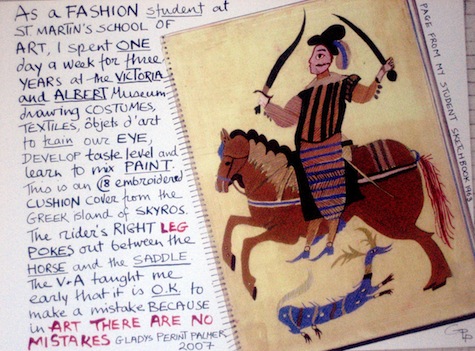 As a FASHION student at
ST MARTIN'S SCHOOL OF
ART, I spent ONE
day a week for three
YEARS at the VICTORIA
and ALBERT Museum
drawing COSTUMES,
TEXTILES, objets d'art
to train our EYE,
DEVELOP taste level and
learn to mix PAINT.
This is an C18 embroidered
CUSHION cover from the
GREEK island of SKYROS.
The rider's RIGHT LEG
POKES out between the
HORSE and the SADDLE.
The V+A taught me
early that it is O.K. to
make a mistake BECAUSE
in ART THERE ARE NO
MISTAKES GLADYS PERINT PALMER
2007
PAGE FROM MY STUDENT SKETCHBOOK
GPP